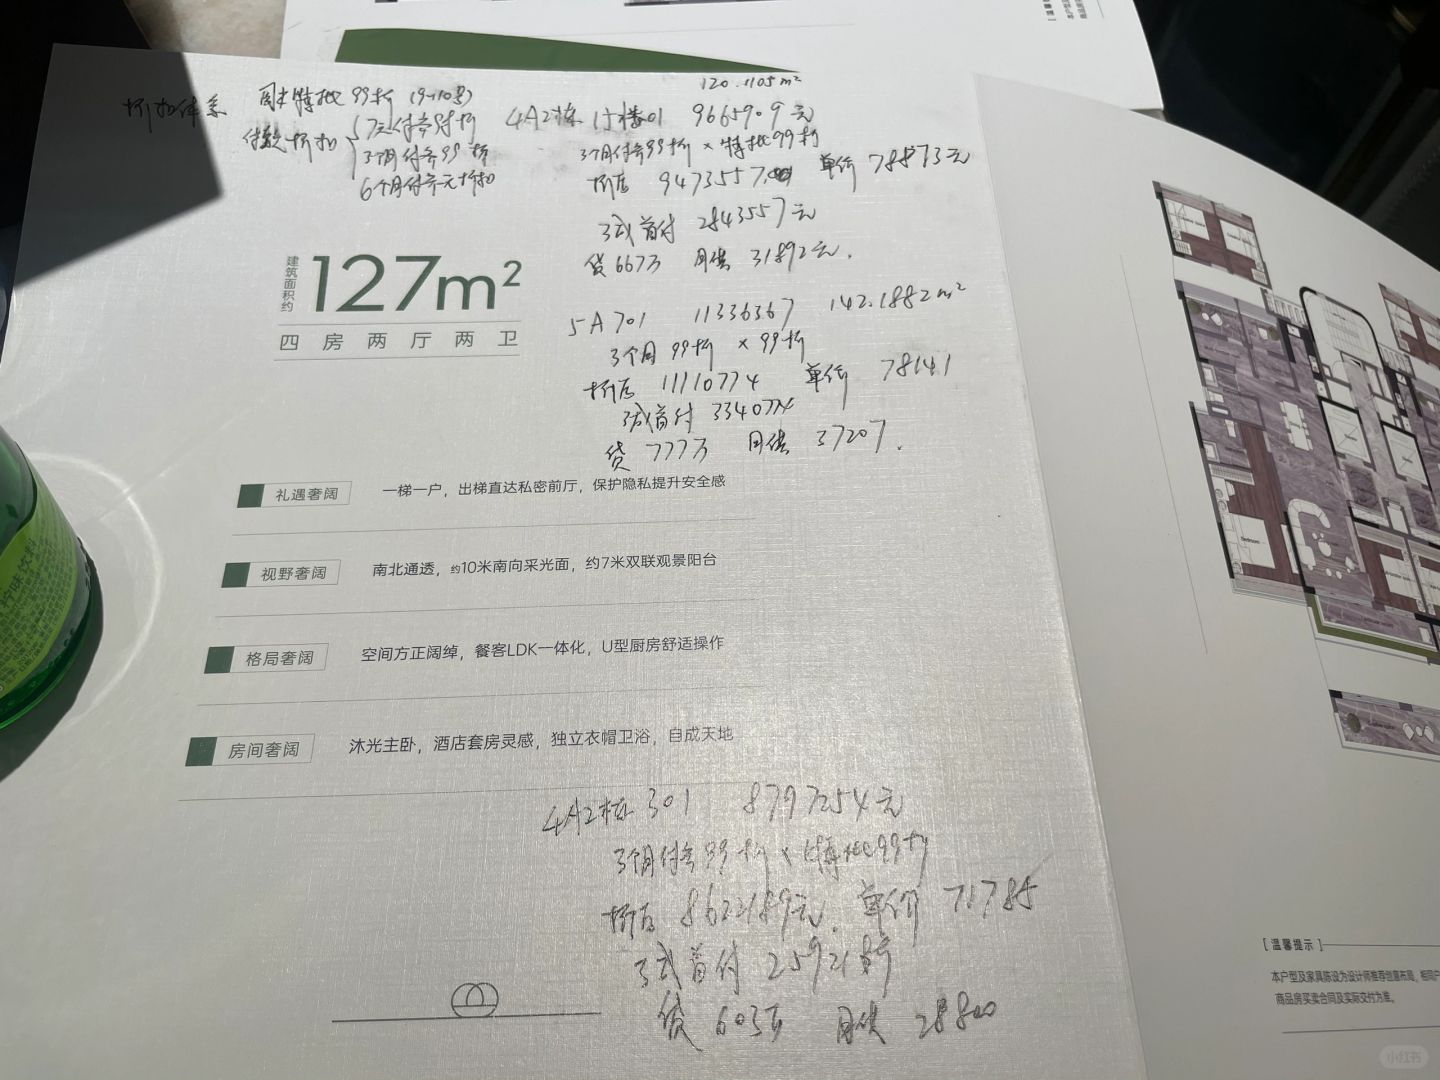 折扣体系
周末特批99折 (9-10号)
付款折扣
7天付齐98折
3个月付齐99折
6个月付齐无折扣
120.1105m²
4A2栋 15楼01 9665909元
3个月付齐99折×特批99折
折后 9473557元 单价 78873元
3成首付 2843557元
贷667万 月供 31892元.
5A701 11336367 142.1882m²
3个月99折×99折
折后 11110774 单价 78141
3成首付 3340774
贷 777万 月供 37207.
建筑面积约
127m²
四房两厅两卫
礼遇奢阔 一梯一户，出梯直达私密前厅，保护隐私提升安全感
视野奢阔 南北通透，约10米南向采光面，约7米双联观景阳台
格局奢阔 空间方正阔绰，餐客LDK一体化，U型厨房舒适操作
房间奢阔 沐光主卧，酒店套房灵感，独立衣帽卫浴，自成天地
4A2栋301 8797254元
3个月付齐99折×特批99折
折后 8622189元. 单价 71785
3成首付
贷 603万 月供 28800
[ 温馨提示 ]
本户型及家具陈设为设计师推荐创意布局，
商品房买卖合同及实际交付为准。
小红书